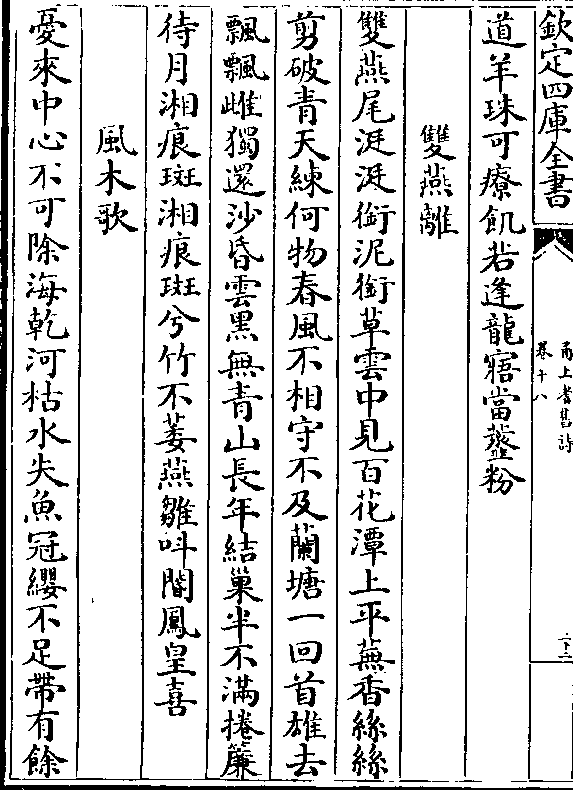 欽定四庫全書
甬上耆舊詩
卷十八
道羊珠可療飢若逢龍寤當虀粉
雙燕離
雙燕尾涎涎銜泥銜草雲中見百花潭上平蕪香絲絲
剪破青天練何物春風不相守不及蘭塘一回首雄去
飄飄雌獨還沙昏雲黑無青山長年結巢半不滿捲簾
待月湘痕斑湘痕斑兮竹不萎燕雛呌闇鳳皇喜
風木歌
憂來中心不可除海乾河枯水失魚冠纓不足帶有餘